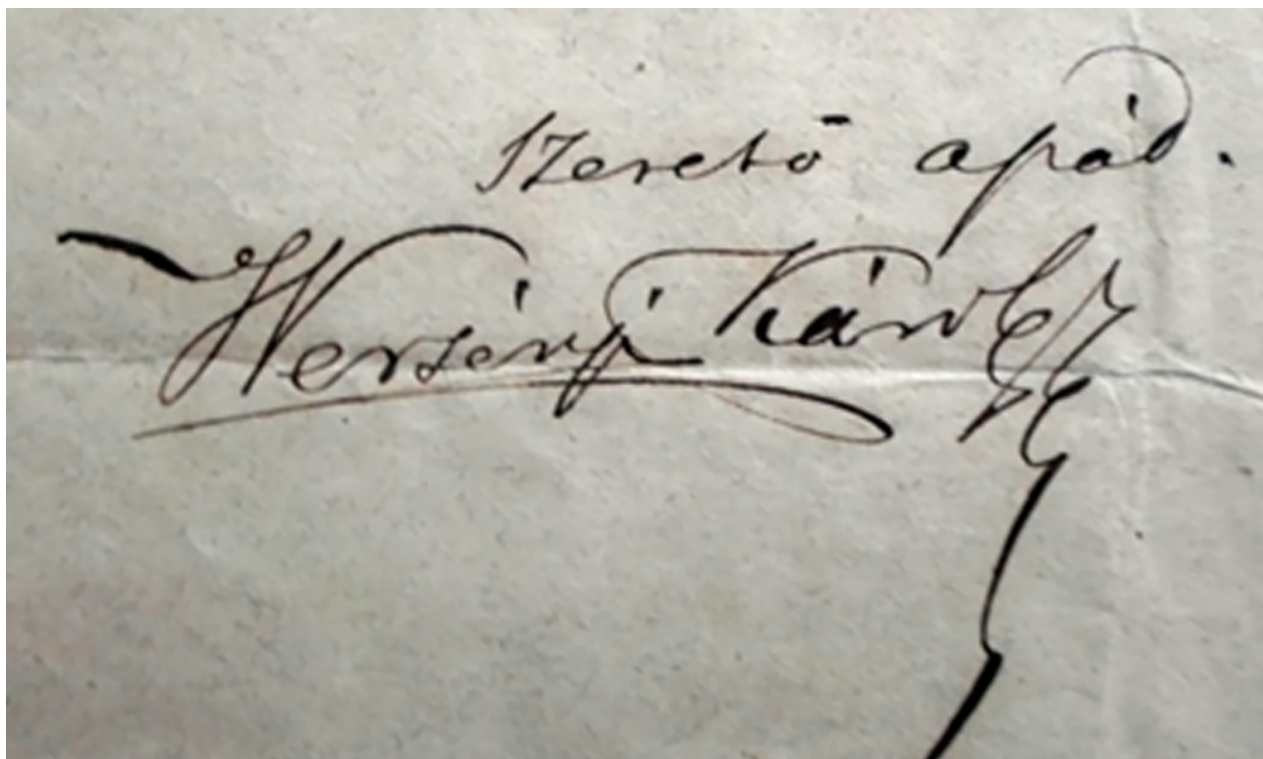 Szerető apád.
Wersényi Károly